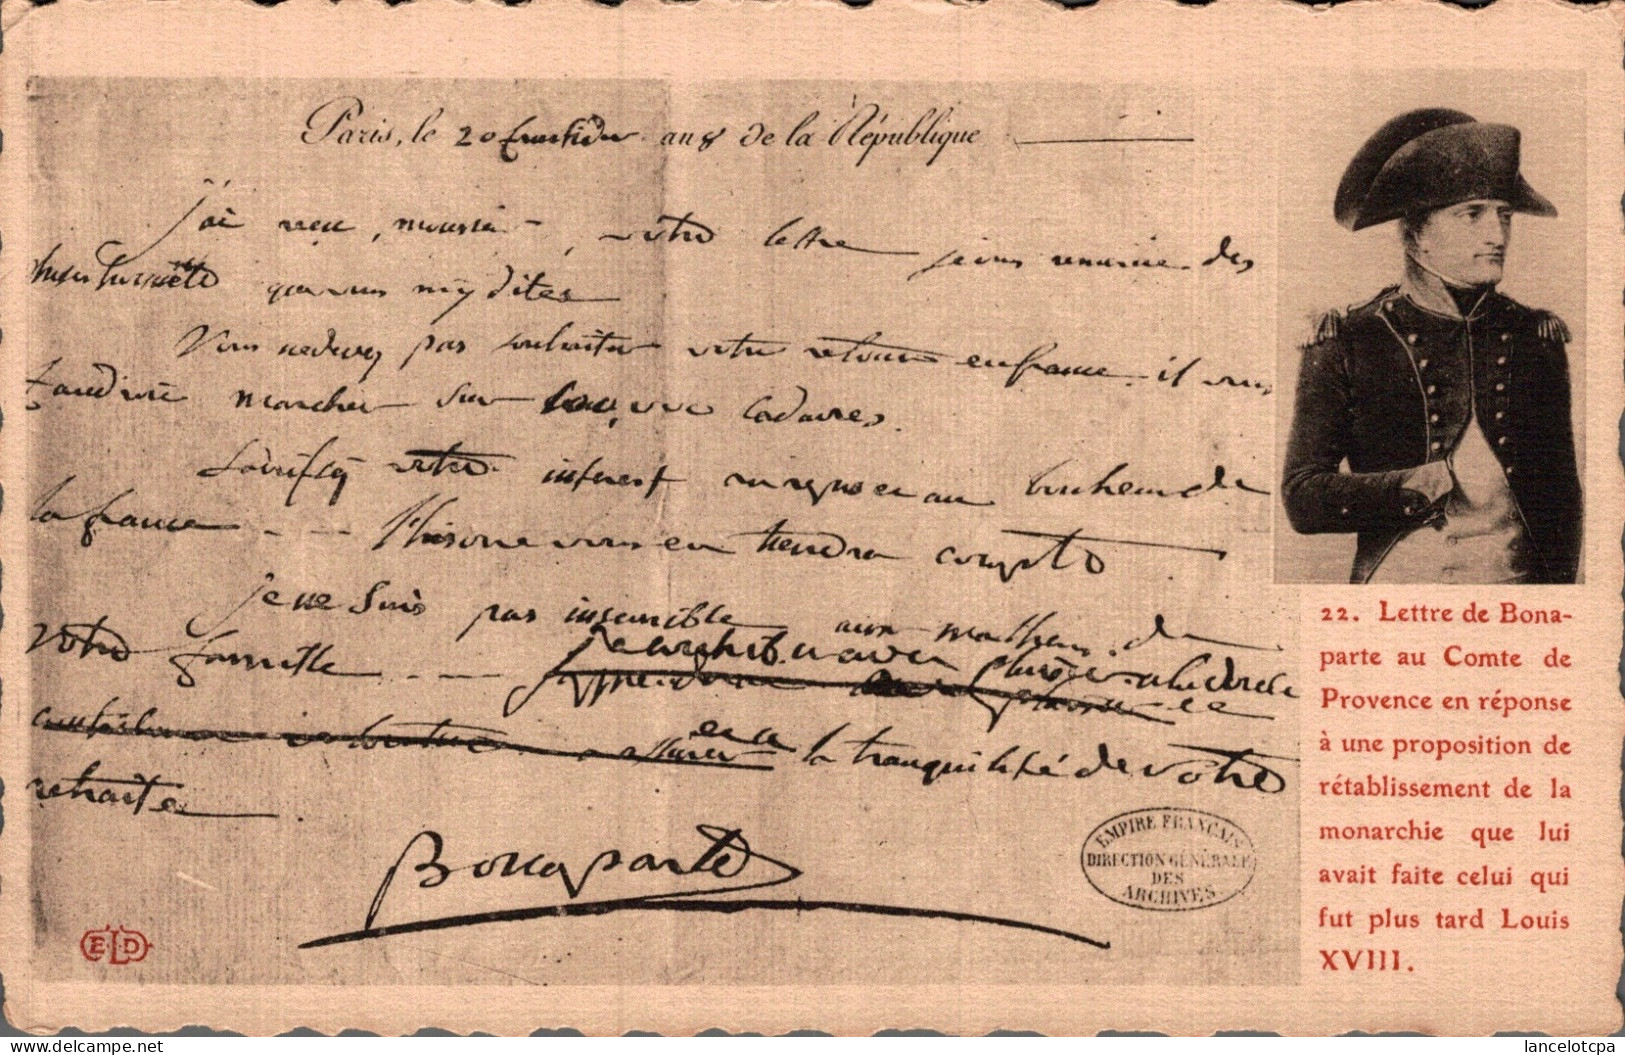 Paris, le 20 fructidor an 8 de la République
j'ai reçu, monsieur, votre lettre je vous remercie des
choses honnêtes que vous m'y dites
Vous ne devez pas souhaiter votre retour en france. il vous
faudroit marcher sur 100,000 cadavres.
Sacrifiez votre interest au repos et au bonheur de
la france - - - l'histoire vous en tiendra compte
je ne suis pas insensible aux malheurs de
votre famille - - - je
contribuer à la tranquilité de votre
retraite
Bonaparte
EMPIRE FRANÇAIS
DIRECTION GÉNÉRALE
DES
ARCHIVES
ELD
22. Lettre de Bona-
parte au Comte de
Provence en réponse
à une proposition de
rétablissement de la
monarchie que lui
avait faite celui qui
fut plus tard Louis
XVIII.
delcampe.net
lancelotcpa